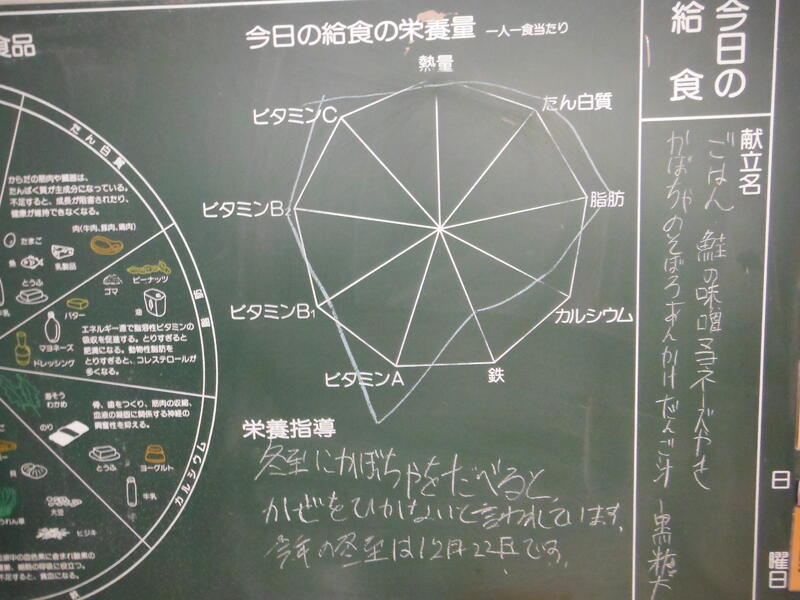 今日の給食の栄養量 一人一食当たり
熱量
たん白質
脂肪
カルシウム
鉄
ビタミンA
ビタミンB1
ビタミンB2
ビタミンC
栄養指導
冬至にかぼちゃをたべると、
かぜをひかないと言われています。
今年の冬至は12月22日です。
今日の
給食
献立名
ごはん 鮭の味噌マヨネーズやき
かぼちゃのそぼろあんかけ だんご汁
日
曜日
食品
たん白質
からだの筋肉や臓器は、
たんぱく質が主成分になっている。
不足すると、成長が阻害されたり、
健康が維持できなくなる。
肉(牛肉、豚肉、鶏肉)
たまご
魚
乳製品
とうふ
牛乳
脂肪
ピーナッツ
ゴマ
油
バター
マヨネーズ
ドレッシング
エネルギー源で脂溶性ビタミンの
吸収を促進する。とりすぎると
肥満になる。動物性脂肪を
とりすぎると、コレステロールが
多くなる。
カルシウム
骨、歯をつくり、筋肉の収縮、
血液の凝固に関係する神経の
興奮性を抑える。
わかめ
のり
とうふ
ヨーグルト
牛乳
貝
大豆
ヒジキ
うれん草